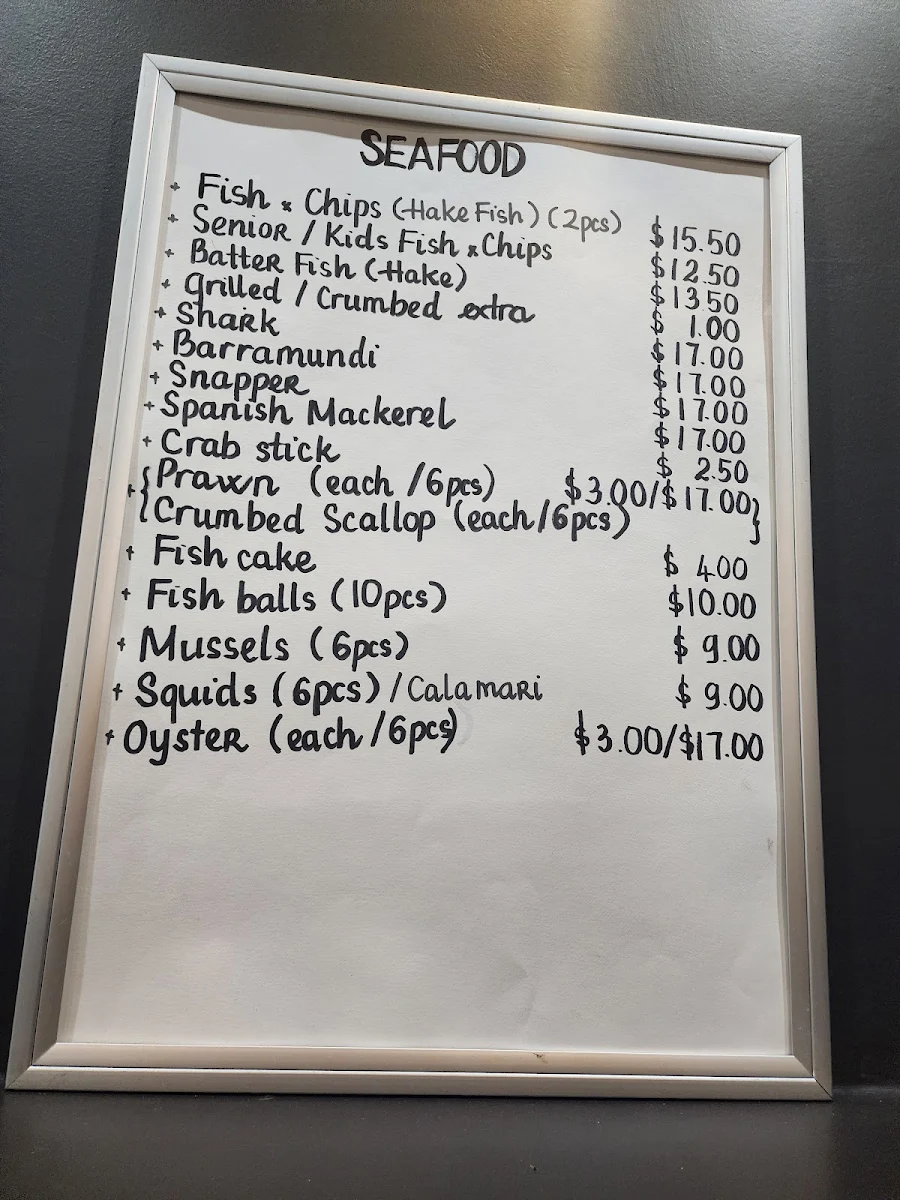 SEAFOOD
+ Fish & Chips (Hake Fish) (2pcs) $15.50
+ Senior / Kids Fish & Chips $12.50
+ Batter Fish (Hake) $13.50
+ grilled / Crumbed extra $ 1.00
+ Shark $17.00
+ Barramundi $17.00
+ Snapper $17.00
+ Spanish Mackerel $17.00
+ Crab stick $ 2.50
+ { Prawn (each /6pcs) $3.00/$17.00 }
{ Crumbed Scallop (each/6pcs) }
+ Fish cake $ 4.00
+ Fish balls (10pcs) $10.00
+ Mussels (6pcs) $ 9.00
+ Squids (6pcs) / Calamari $ 9.00
+ Oyster (each /6pcs) $3.00/$17.00